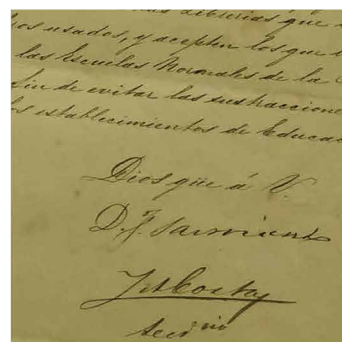 librerías que
usados, y acepten los que
las Escuelas Normales de la
fin de evitar las sustraccione
los establecimientos de Educac
Dios gūe á V.
D. F. Sarmiento